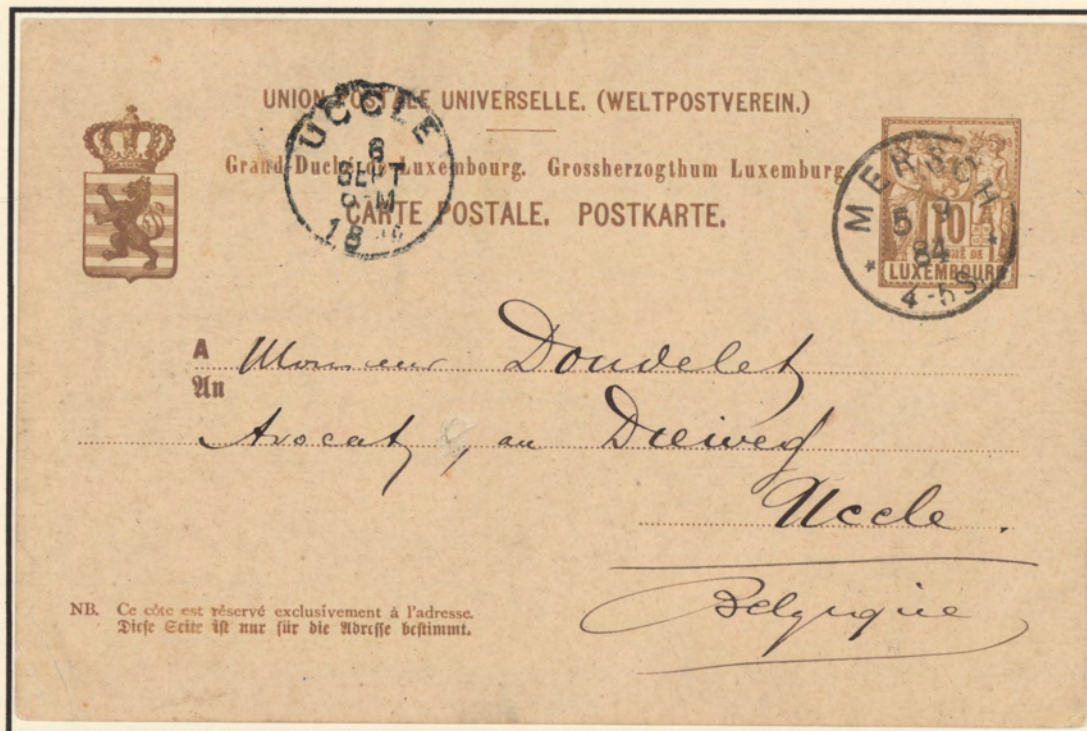 UNION POSTALE UNIVERSELLE. (WELTPOSTVEREIN.)
Grand-Duché de Luxembourg. Grossherzogthum Luxemburg
CARTE POSTALE. POSTKARTE.
UCCLE
8
SEPT
9-M
18
MERSCH
5 9
84
4-5S
10
LUXEMBOURG
A Monsieur Doudelet
An
Avocat, au Dieweg
Uccle.
Belgique
NB. Ce côte est réservé exclusivement à l'adresse.
Diese Seite ist nur für die Adresse bestimmt.